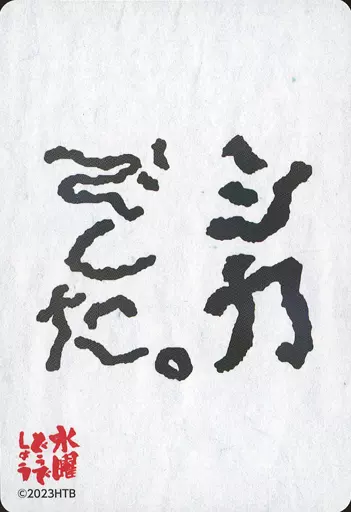 シカ
でした。
水曜
どうで
しょう
©2023HTB